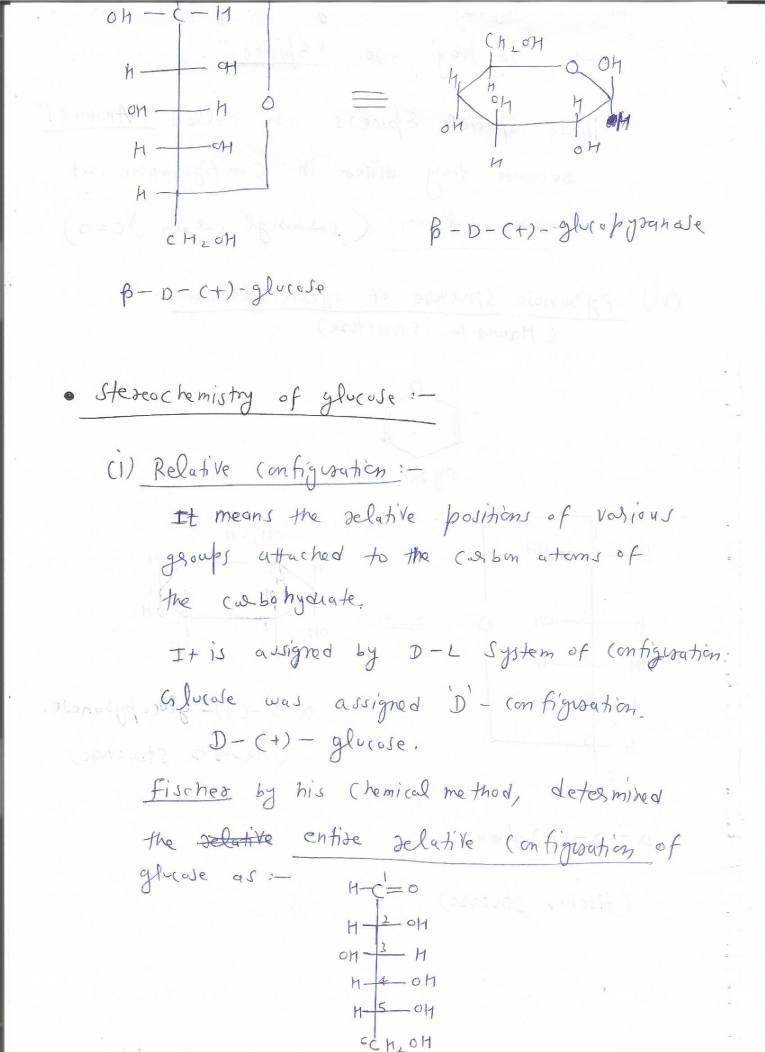 OH — C — H
CH₂OH
H — OH
O OH
H H H
OH — H O ≡ OH
OH OH
H — OH OH
H
H
CH₂OH
β – D – (+) – glucopyranose
β – D – (+) – glucose
• Stereochemistry of glucose :–
(i) Relative Configuration :–
It means the relative positions of various
groups attached to the carbon atoms of
the carbohydrate.
It is assigned by D–L System of Configuration.
Glucose was assigned 'D' – configuration.
D – (+) – glucose.
Fischer by his Chemical method, determined
the relative entire relative Configuration of
glucose as :–
H–C¹=O
H 2 OH
OH 3 H
H 4 OH
H 5 OH
⁶CH₂OH